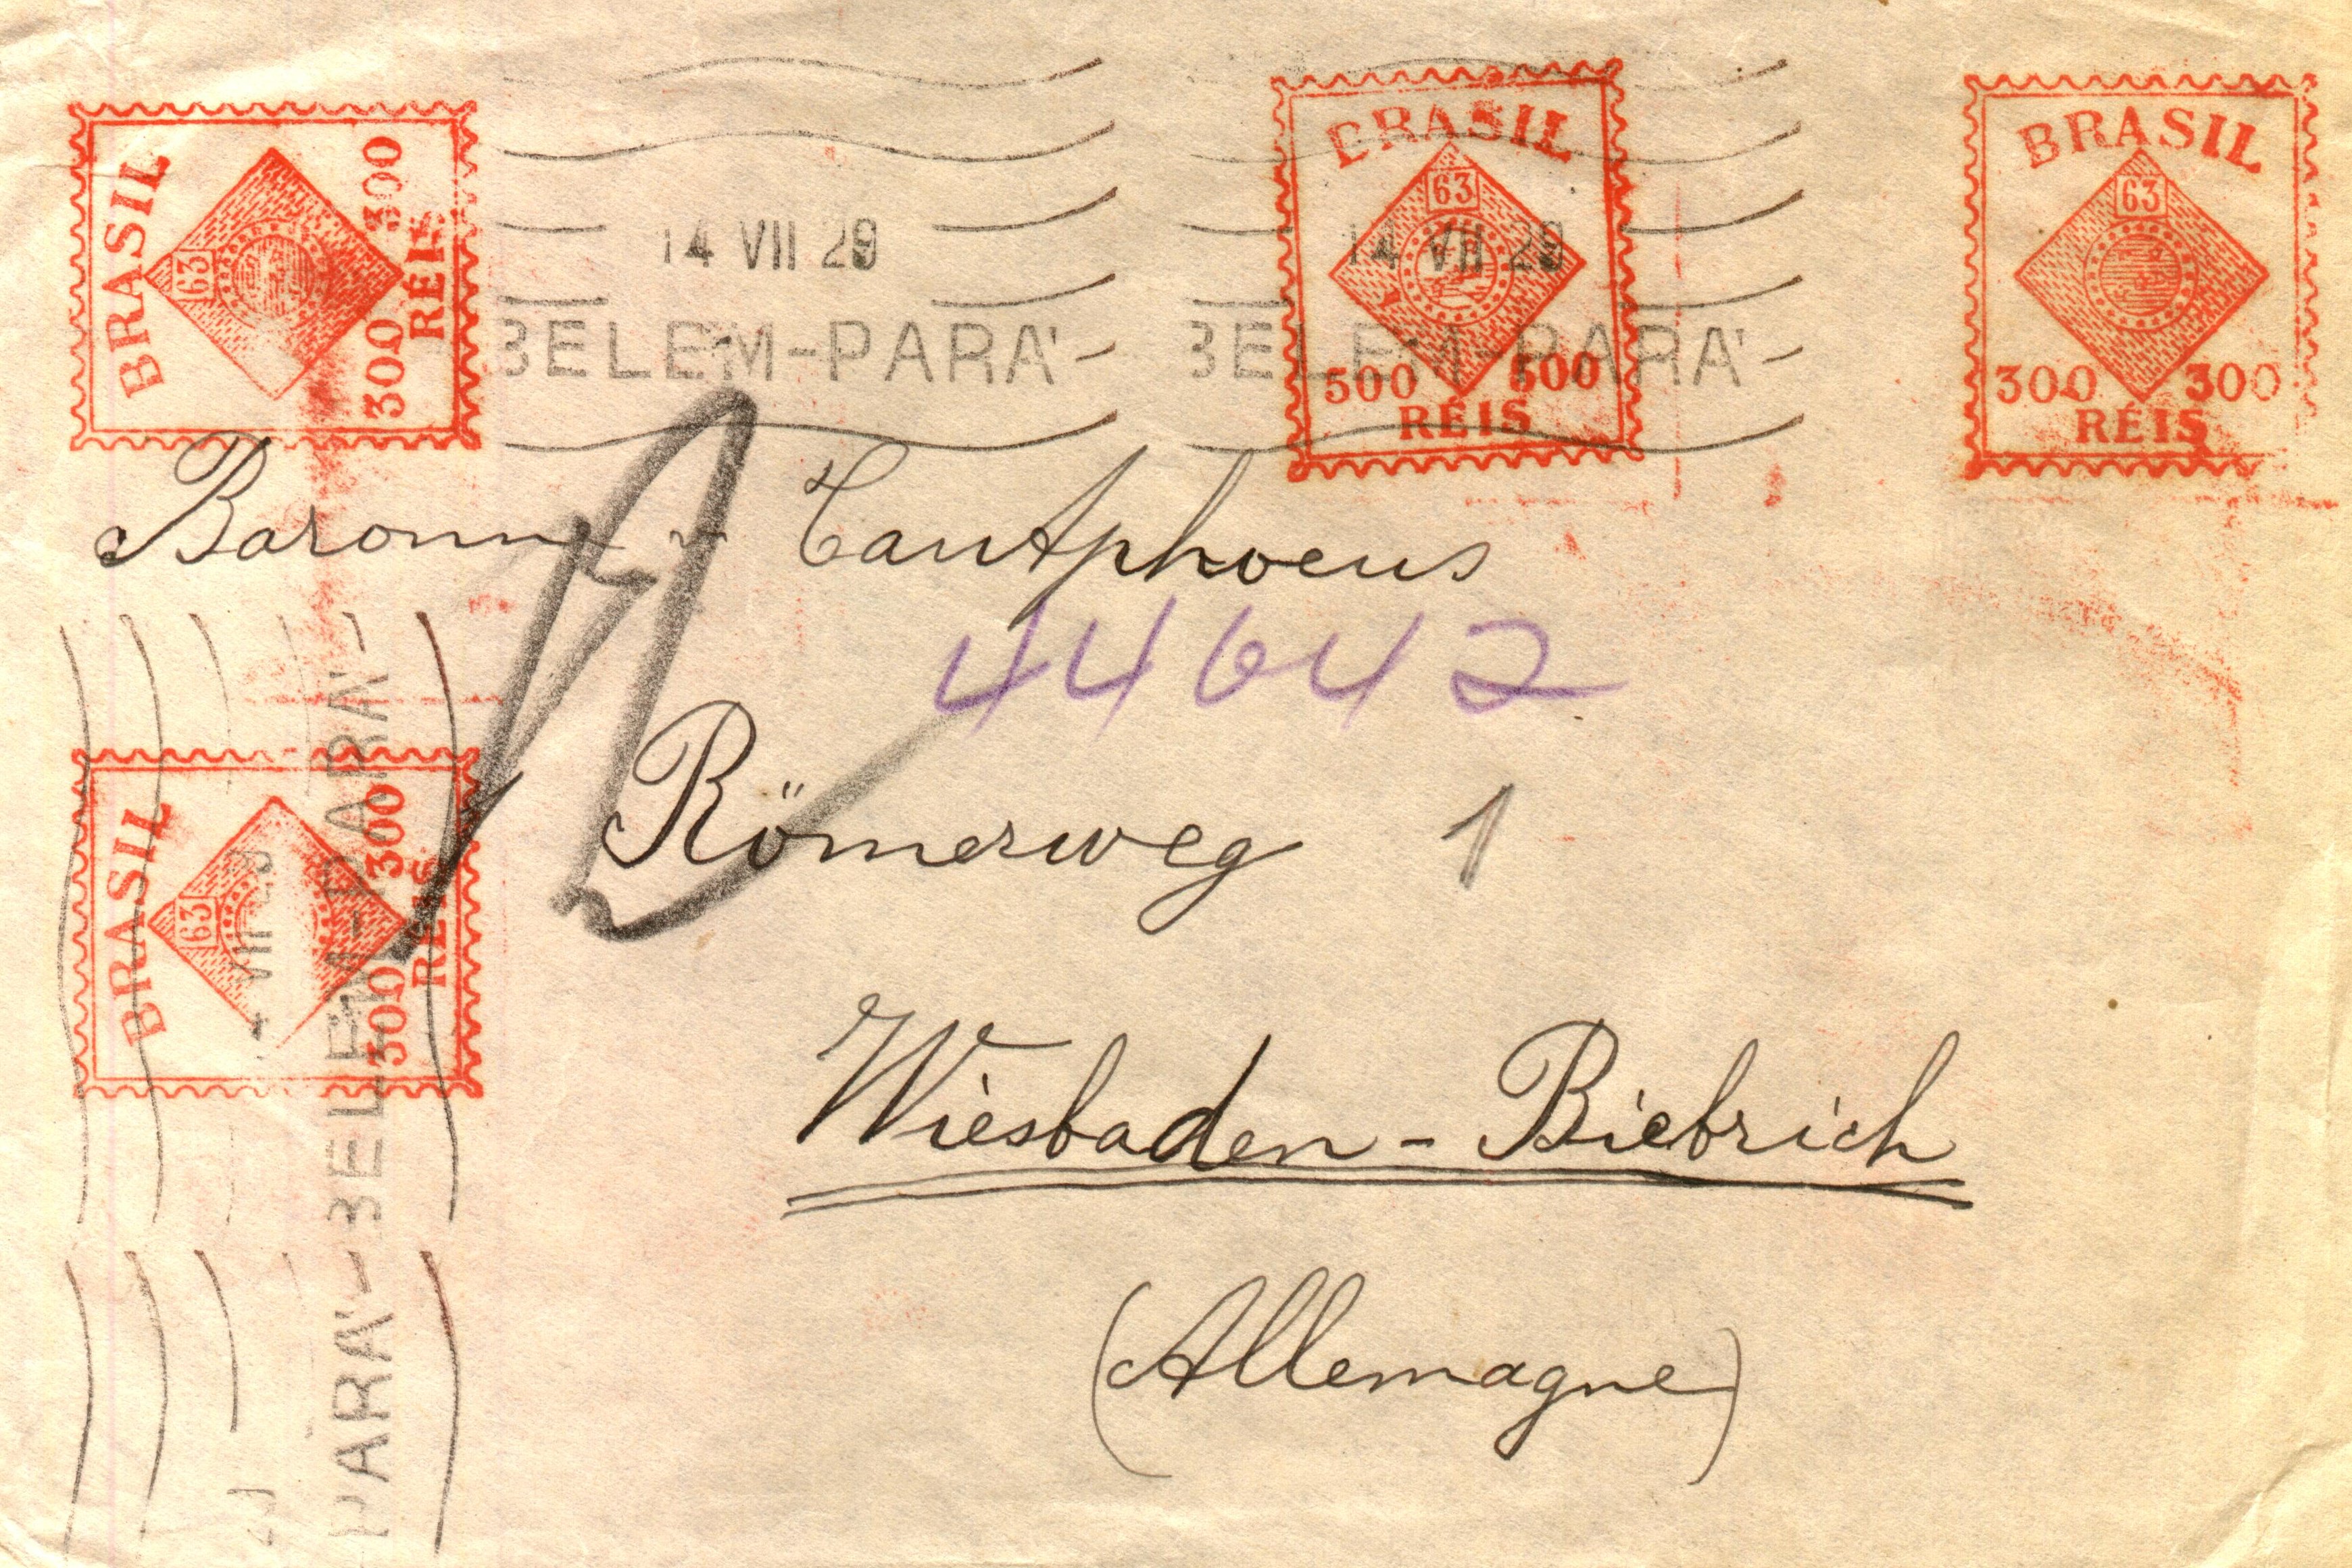 BRASIL
63
300 300
RÉIS
14 VII 29
BELEM-PARA'-
14 VII 29
BELEM-PARA'-
BRASIL
63
500 500
RÉIS
BRASIL
63
300 300
RÉIS
Baronne Tautphoeus
44642
Römerweg 1
BRASIL
63
300 300
RÉIS
VII 29
PARA'-BELEM-PARA'-
Wiesbaden - Biebrich
(Allemagne)